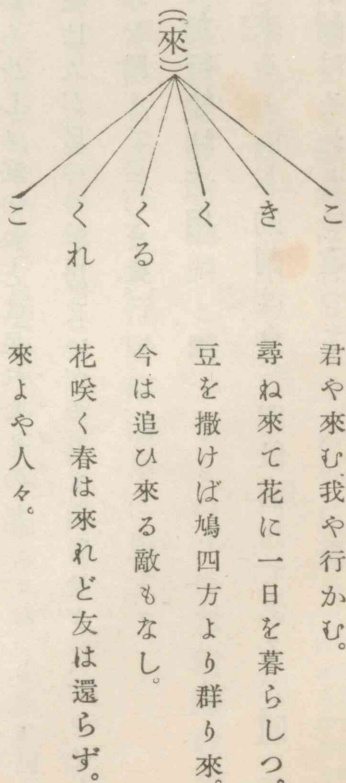 (來)
こ 君や來む我や行かむ。
き 尋ね來て花に一日を暮らしつ。
く 豆を撒けば鳩四方より群り來。
くる 今は追ひ來る敵もなし。
くれ 花咲く春は來れど友は還らず。
こ 來よや人々。